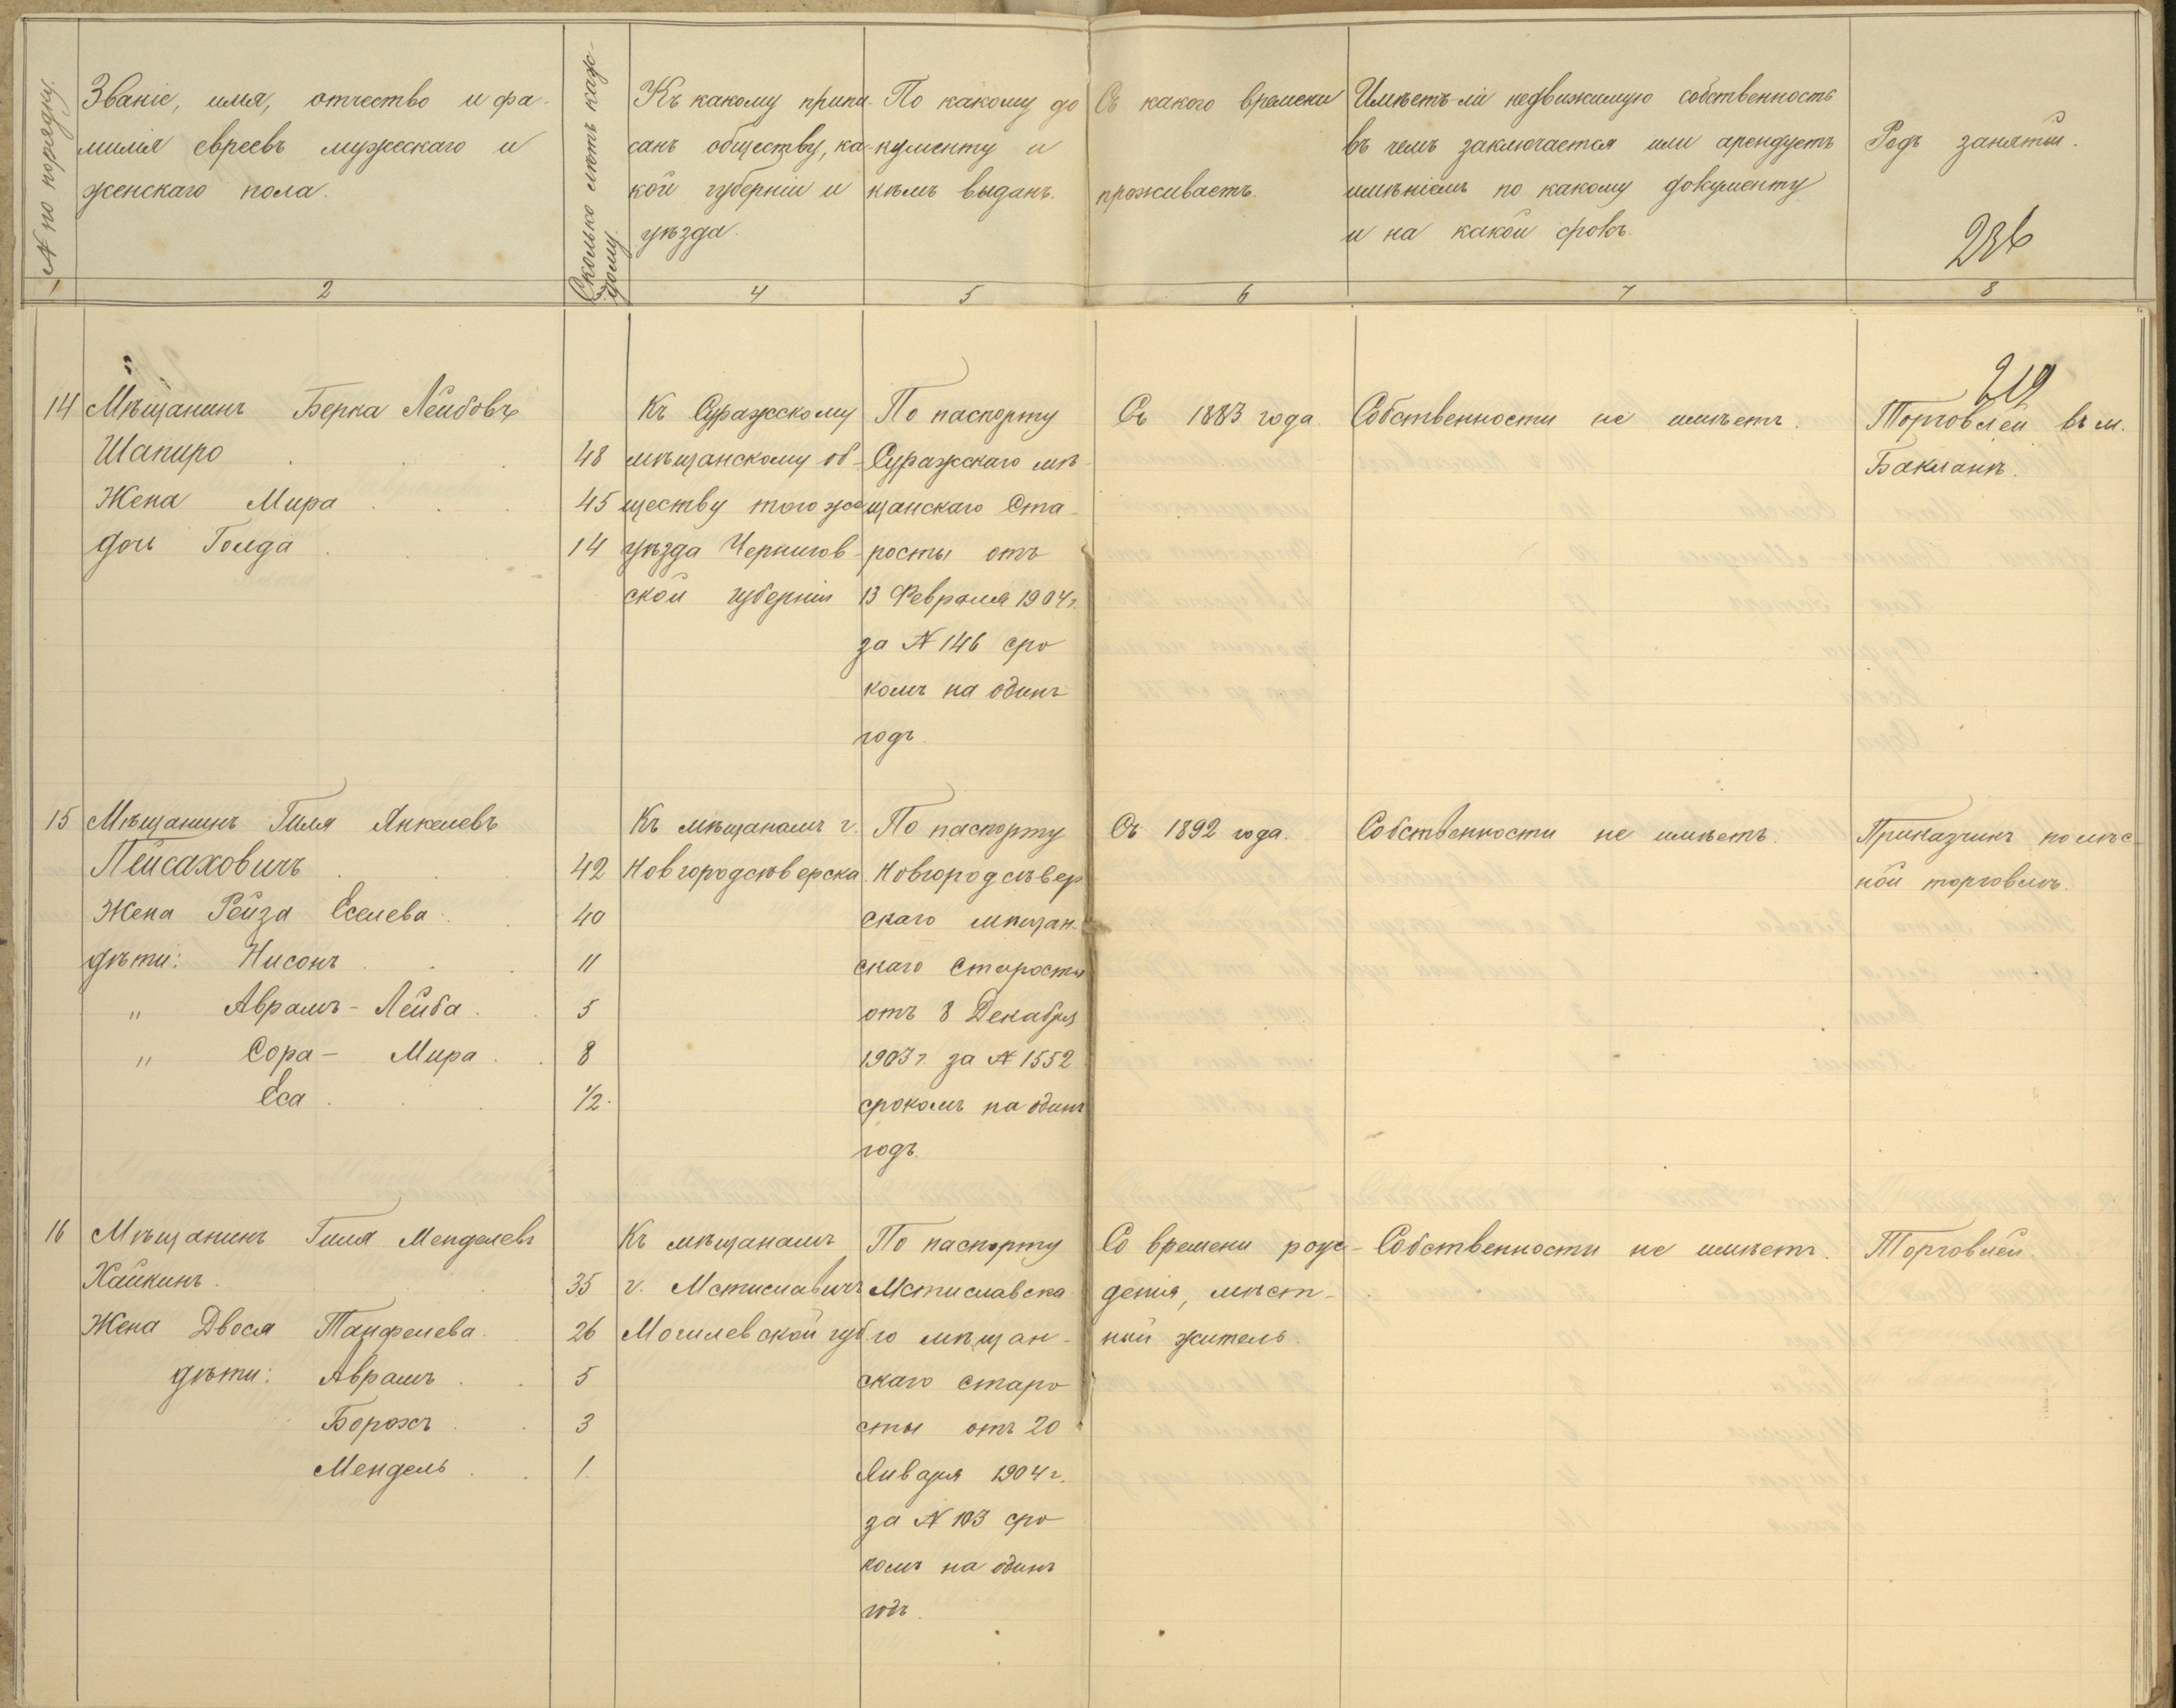 № по порядку.
Званіе, имя, отчество и фа-
милія евреевъ мужескаго и
женскаго пола.
Сколько лѣтъ каж-
дому.
Къ какому припи-
санъ обществу, ка-
кой губерніи и
уѣзда.
По какому до
кументу и
кѣмъ выданъ.
Съ какого времени
проживаетъ.
Имѣетъ ли недвижимую собственность
въ чемъ заключается или арендуетъ
имѣніемъ по какому документу
и на какой срокъ.
Родъ занятій.
236
1
2
3
4
5
6
7
8
219
14
Мѣщанинъ Берка Лейбовъ
Шапиро
48
Жена Мира
45
дочь Голда
14
Къ Суражскому
мѣщанскому об-
ществу того же
уѣзда Чернигов-
ской губерніи
По паспорту
Суражскаго мѣ-
щанскаго Ста-
росты отъ
13 Февраля 1904 г.
за № 146 сро
комъ на одинъ
годъ.
Съ 1883 года.
Собственности не имѣетъ.
Торговлей въ м.
Бакланѣ.
15
Мѣщанинъ Гиля Янкелевъ
Пейсаховичъ
42
Жена Рейза Еселева
40
дѣти: Нисонъ
11
" Аврамъ-Лейба.
5
" Сора- Мира.
8
Еса
1/2.
Къ мѣщанамъ г.
Новгородсѣверска
По паспорту
Новгородсѣвер
скаго мѣщан-
скаго Старосты
отъ 8 Декабря
1903 г. за № 1552
срокомъ на одинъ
годъ.
Съ 1892 года.
Собственности не имѣетъ.
Приказчикъ по лѣс-
ной торговлѣ.
16
Мѣщанинъ Гиля Менделевъ
Хайкинъ.
35
Жена Двося Танфелева.
26
дѣти: Аврамъ
5
Борохъ
3
Мендель
1.
Къ мѣщанамъ
г. Мстиславичъ
Могилевской губ
По паспорту
Мстиславска
го мѣщан-
скаго старо
сты отъ 20
Января 1904 г.
за № 103 сро
комъ на одинъ
годъ.
Со времени рож-
денія, мѣст-
ный житель.
Собственности не имѣетъ.
Торговлей.